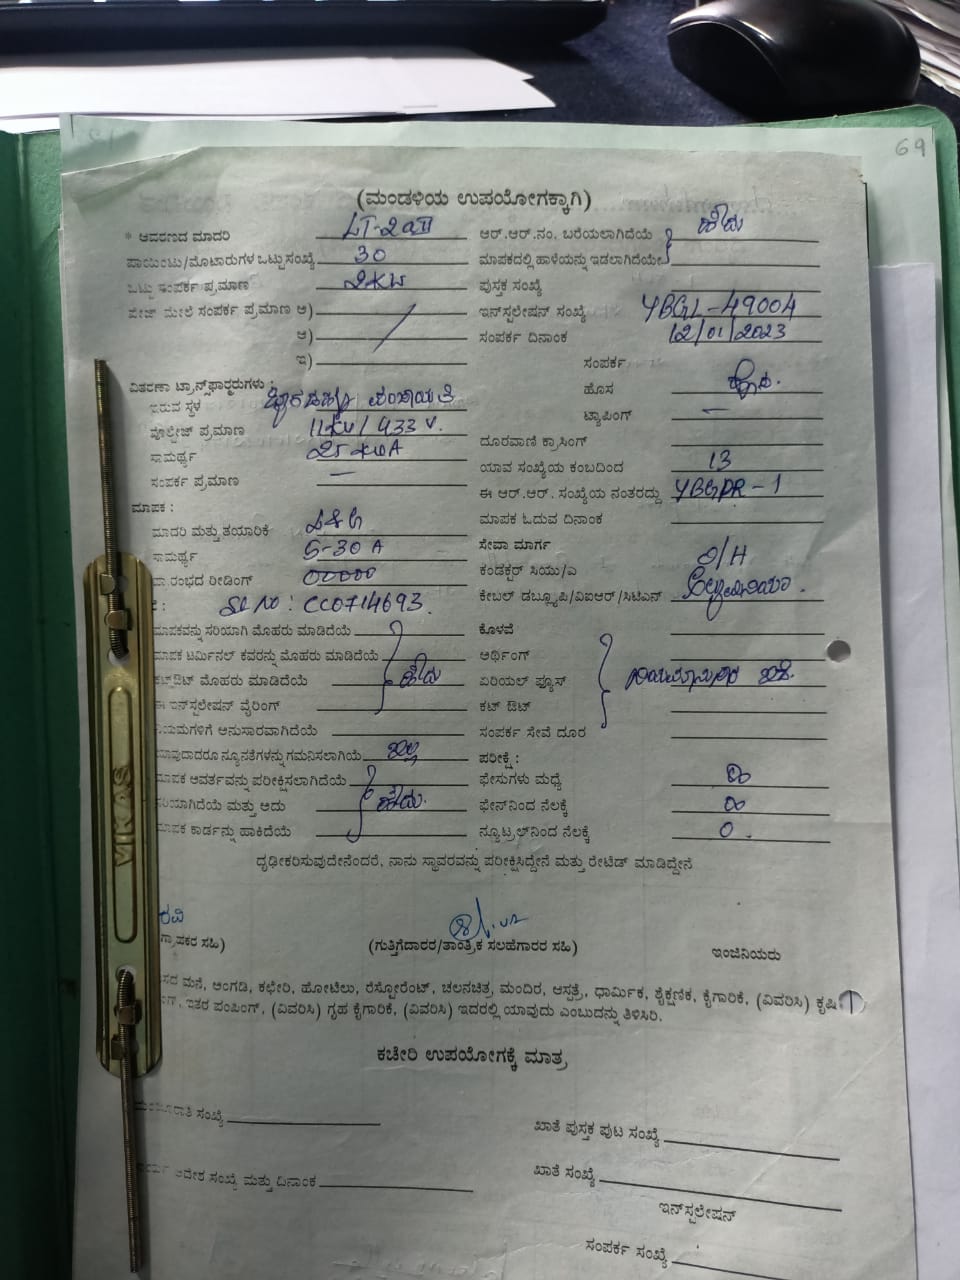 69
(ಮಂಡಳಿಯ ಉಪಯೋಗಕ್ಕಾಗಿ)
* ಆವರಣದ ಮಾದರಿ LT-2aII
ಪಾಯಿಂಟು/ಮೋಟಾರುಗಳ ಒಟ್ಟು ಸಂಖ್ಯೆ 30
ಒಟ್ಟು ಸಂಪರ್ಕ ಪ್ರಮಾಣ 2KW
ಪೇಜ್ ಮೇಲೆ ಸಂಪರ್ಕ ಪ್ರಮಾಣ ಅ)
ಆ)
ಇ)
ವಿತರಣಾ ಟ್ರಾನ್ಸ್‌ಫಾರ್ಮರುಗಳು :
ಇರುವ ಸ್ಥಳ ಪಂಚಾಯತಿ
ವೋಲ್ಟೇಜ್ ಪ್ರಮಾಣ 11KV/433 V.
ಸಾಮರ್ಥ್ಯ 25 KVA
ಸಂಪರ್ಕ ಪ್ರಮಾಣ —
ಮಾಪಕ :
ಮಾದರಿ ಮತ್ತು ತಯಾರಿಕೆ L&G
ಸಾಮರ್ಥ್ಯ 5-30 A
ಪ್ರಾರಂಭದ ರೀಡಿಂಗ್ 00000
SL NO : CC0714693.
ಮಾಪಕವನ್ನು ಸರಿಯಾಗಿ ಮೊಹರು ಮಾಡಿದೆಯೆ
ಮಾಪಕ ಟರ್ಮಿನಲ್ ಕವರನ್ನು ಮೊಹರು ಮಾಡಿದೆಯೆ
ಕಟ್‌ಔಟ್ ಮೊಹರು ಮಾಡಿದೆಯೆ ಹೌದು
ಈ ಇನ್‌ಸ್ಟಲೇಷನ್ ವೈರಿಂಗ್
ನಿಯಮಗಳಿಗೆ ಅನುಸಾರವಾಗಿದೆಯೆ
ಯಾವುದಾದರೂ ನ್ಯೂನತೆಗಳನ್ನು ಗಮನಿಸಲಾಗಿಯೆ ಇಲ್ಲ
ಮಾಪಕ ಆವರ್ತವನ್ನು ಪರೀಕ್ಷಿಸಲಾಗಿದೆಯೆ
ಸರಿಯಾಗಿದೆಯೆ ಮತ್ತು ಅದು ಹೌದು.
ಮಾಪಕ ಕಾರ್ಡನ್ನು ಹಾಕಿದೆಯೆ
ಆರ್.ಆರ್.ನಂ. ಬರೆಯಲಾಗಿದೆಯೆ ಹೌದು
ಮಾಪಕದಲ್ಲಿ ಹಾಳೆಯನ್ನು ಇಡಲಾಗಿದೆಯೇ
ಪುಸ್ತಕ ಸಂಖ್ಯೆ
ಇನ್‌ಸ್ಟಲೇಷನ್ ಸಂಖ್ಯೆ YBGL-49004
ಸಂಪರ್ಕ ದಿನಾಂಕ 12/01/2023
ಸಂಪರ್ಕ
ಹೊಸ ಹೊಸ.
ಟ್ಯಾಪಿಂಗ್ —
ದೂರವಾಣಿ ಕ್ರಾಸಿಂಗ್
ಯಾವ ಸಂಖ್ಯೆಯ ಕಂಬದಿಂದ 13
ಈ ಆರ್.ಆರ್. ಸಂಖ್ಯೆಯ ನಂತರದ್ದು YBGPR-1
ಮಾಪಕ ಓದುವ ದಿನಾಂಕ
ಸೇವಾ ಮಾರ್ಗ
ಕಂಡಕ್ಟರ್ ಸಿಯು/ಎ O/H
ಕೇಬಲ್ ಡಬ್ಲ್ಯೂಪಿ/ವಿಐಆರ್/ಸಿಟಿಎಸ್
ಕೊಳವೆ
ಅರ್ಥಿಂಗ್
ಏರಿಯಲ್ ಫ್ಯೂಸ್ ನಿಯಮಾನುಸಾರ ಇದೆ.
ಕಟ್ ಔಟ್
ಸಂಪರ್ಕ ಸೇವೆ ದೂರ
ಪರೀಕ್ಷೆ :
ಫೇಸುಗಳು ಮಧ್ಯೆ ∞
ಫೇಸ್‌ನಿಂದ ನೆಲಕ್ಕೆ ∞
ನ್ಯೂಟ್ರಲ್‌ನಿಂದ ನೆಲಕ್ಕೆ 0.
ದೃಢೀಕರಿಸುವುದೇನೆಂದರೆ, ನಾನು ಸ್ಥಾವರವನ್ನು ಪರೀಕ್ಷಿಸಿದ್ದೇನೆ ಮತ್ತು ರೇಟೆಡ್ ಮಾಡಿದ್ದೇನೆ
ರವಿ
ಗ್ರಾಹಕರ ಸಹಿ) (ಗುತ್ತಿಗೆದಾರರ/ತಾಂತ್ರಿಕ ಸಲಹೆಗಾರರ ಸಹಿ) ಇಂಜಿನಿಯರು
ಮನೆ, ಅಂಗಡಿ, ಕಛೇರಿ, ಹೋಟಿಲು, ರೆಸ್ಟೋರೆಂಟ್, ಚಲನಚಿತ್ರ ಮಂದಿರ, ಆಸ್ಪತ್ರೆ, ಧಾರ್ಮಿಕ, ಶೈಕ್ಷಣಿಕ, ಕೈಗಾರಿಕೆ, (ವಿವರಿಸಿ) ಕೃಷಿ
ಇತರ ಪಂಪಿಂಗ್, (ವಿವರಿಸಿ) ಗೃಹ ಕೈಗಾರಿಕೆ, (ವಿವರಿಸಿ) ಇದರಲ್ಲಿ ಯಾವುದು ಎಂಬುದನ್ನು ತಿಳಿಸಿರಿ.
ಕಚೇರಿ ಉಪಯೋಗಕ್ಕೆ ಮಾತ್ರ
ಸಂಖ್ಯೆ
ಆದೇಶ ಸಂಖ್ಯೆ ಮತ್ತು ದಿನಾಂಕ
ಖಾತೆ ಪುಸ್ತಕ ಪುಟ ಸಂಖ್ಯೆ
ಖಾತೆ ಸಂಖ್ಯೆ
ಇನ್‌ಸ್ಟಲೇಷನ್
ಸಂಪರ್ಕ ಸಂಖ್ಯೆ
VIKAS